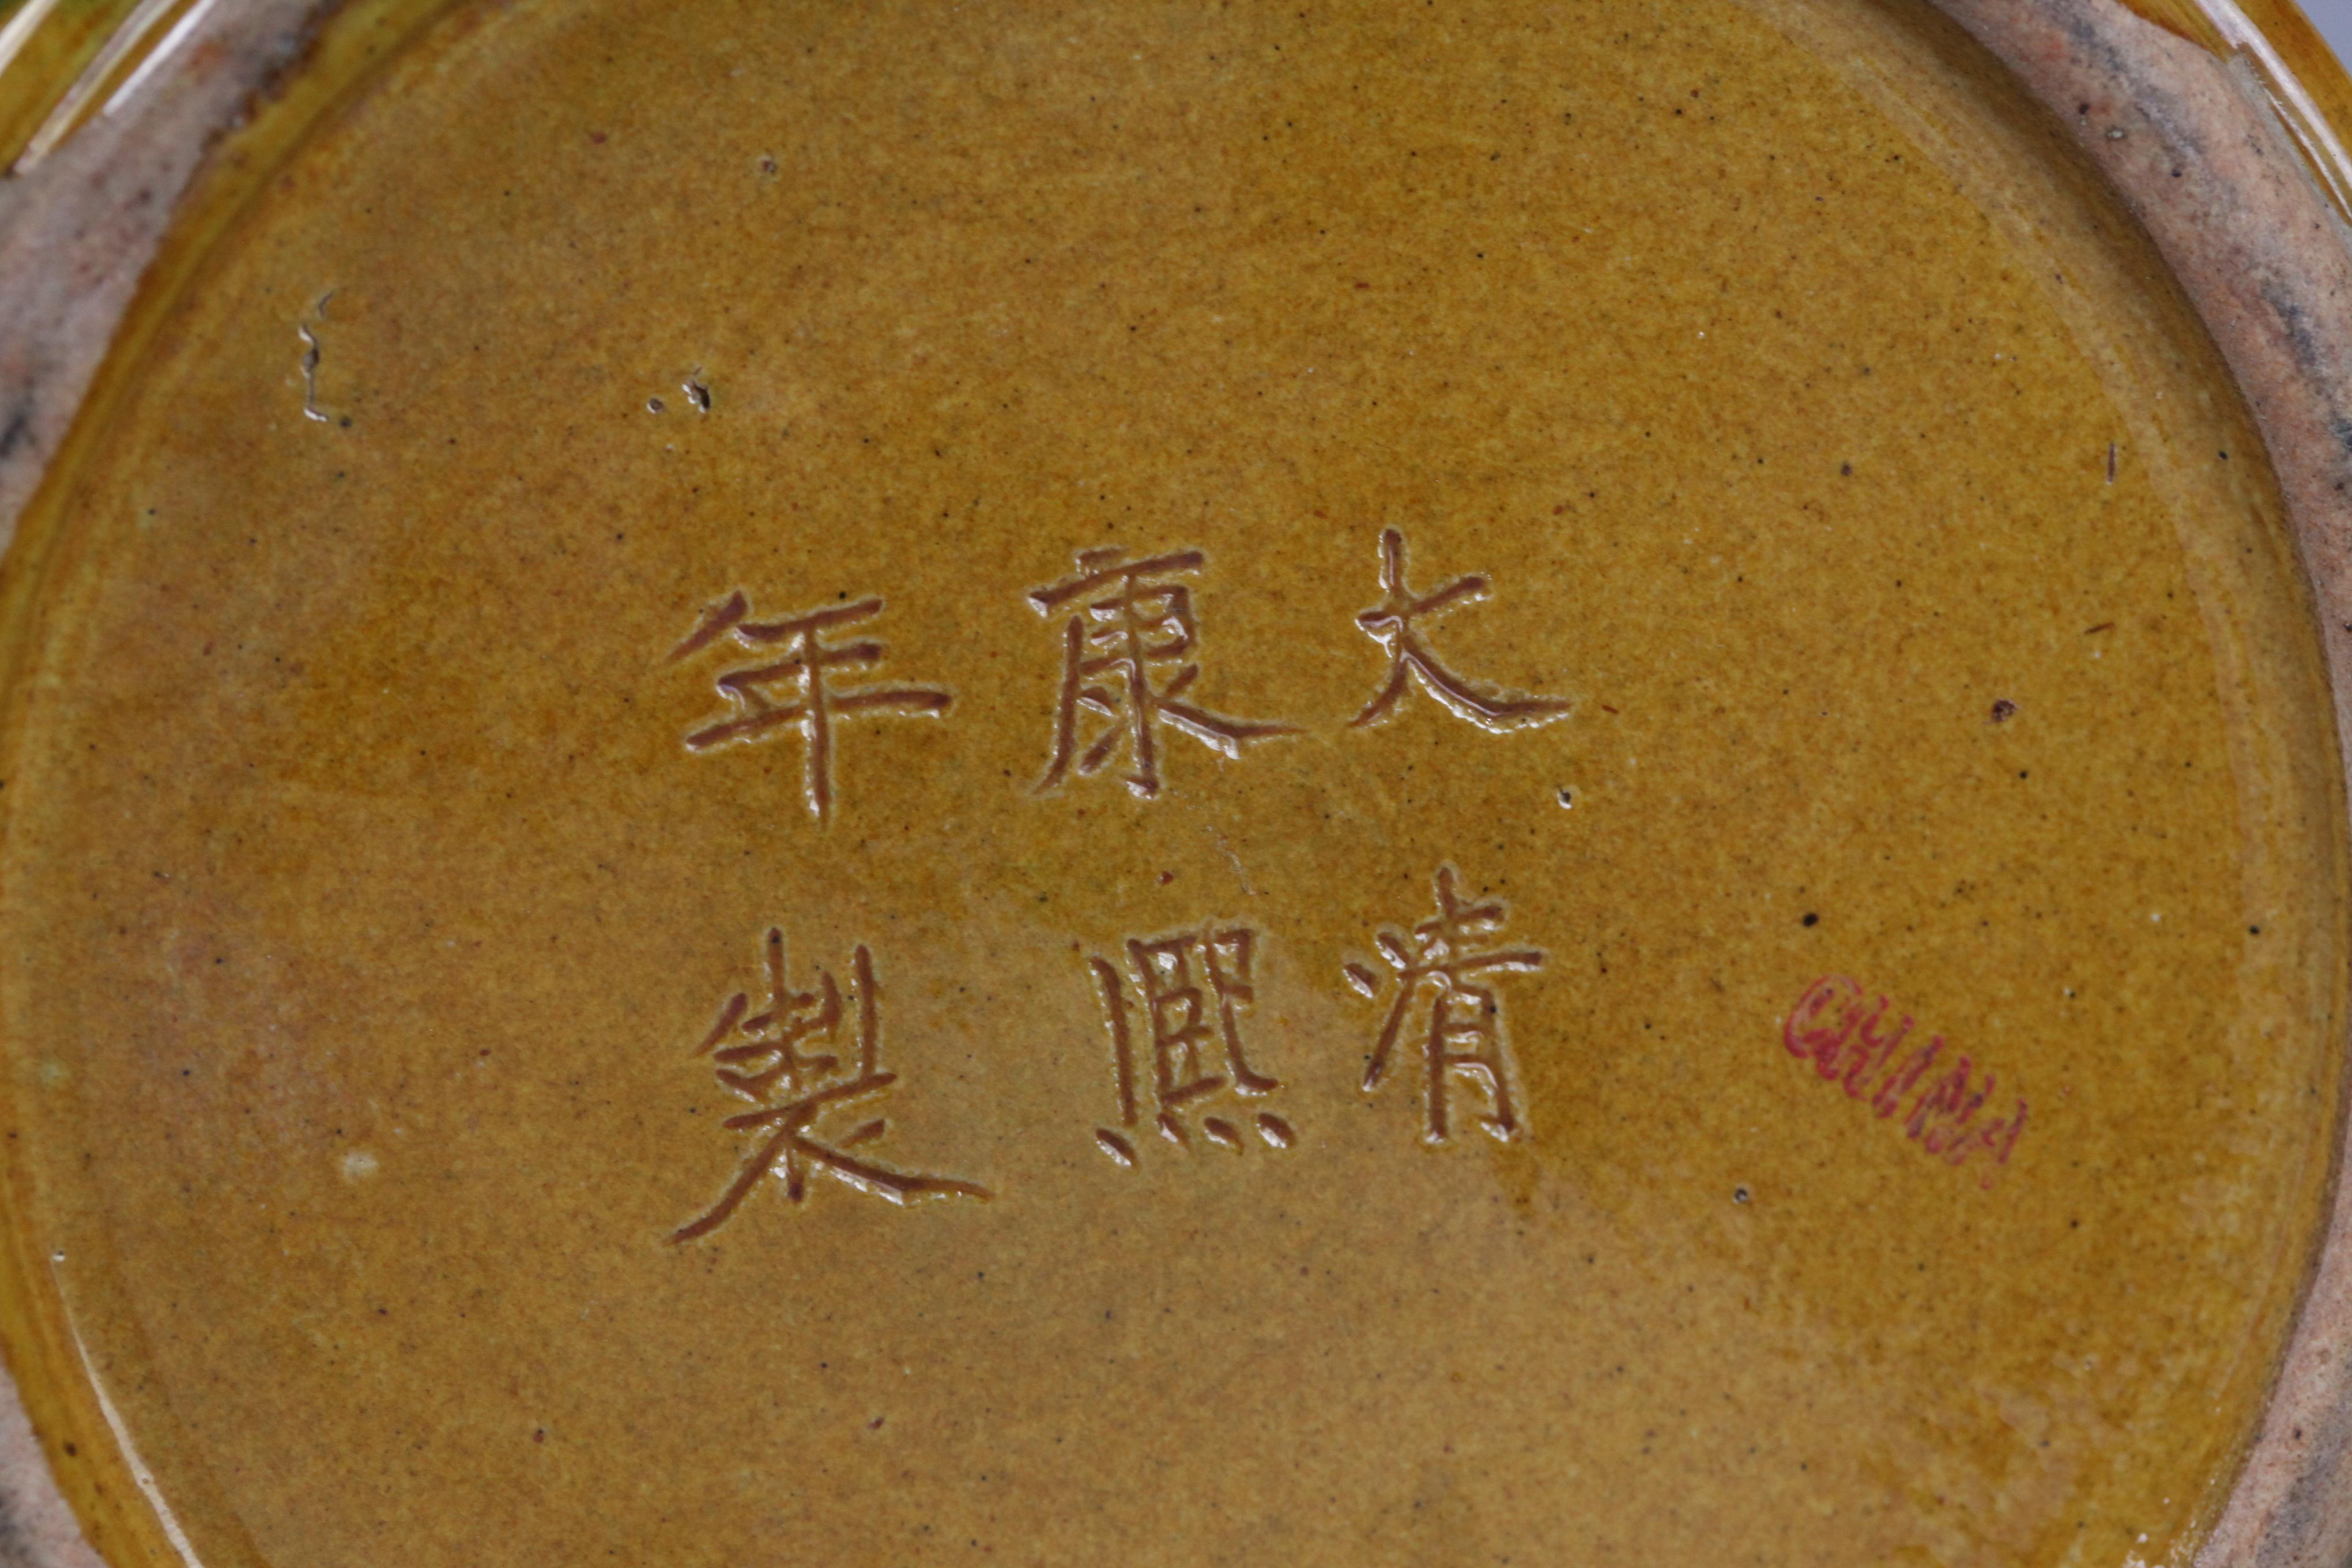 大清
康熙
年製
CHINA